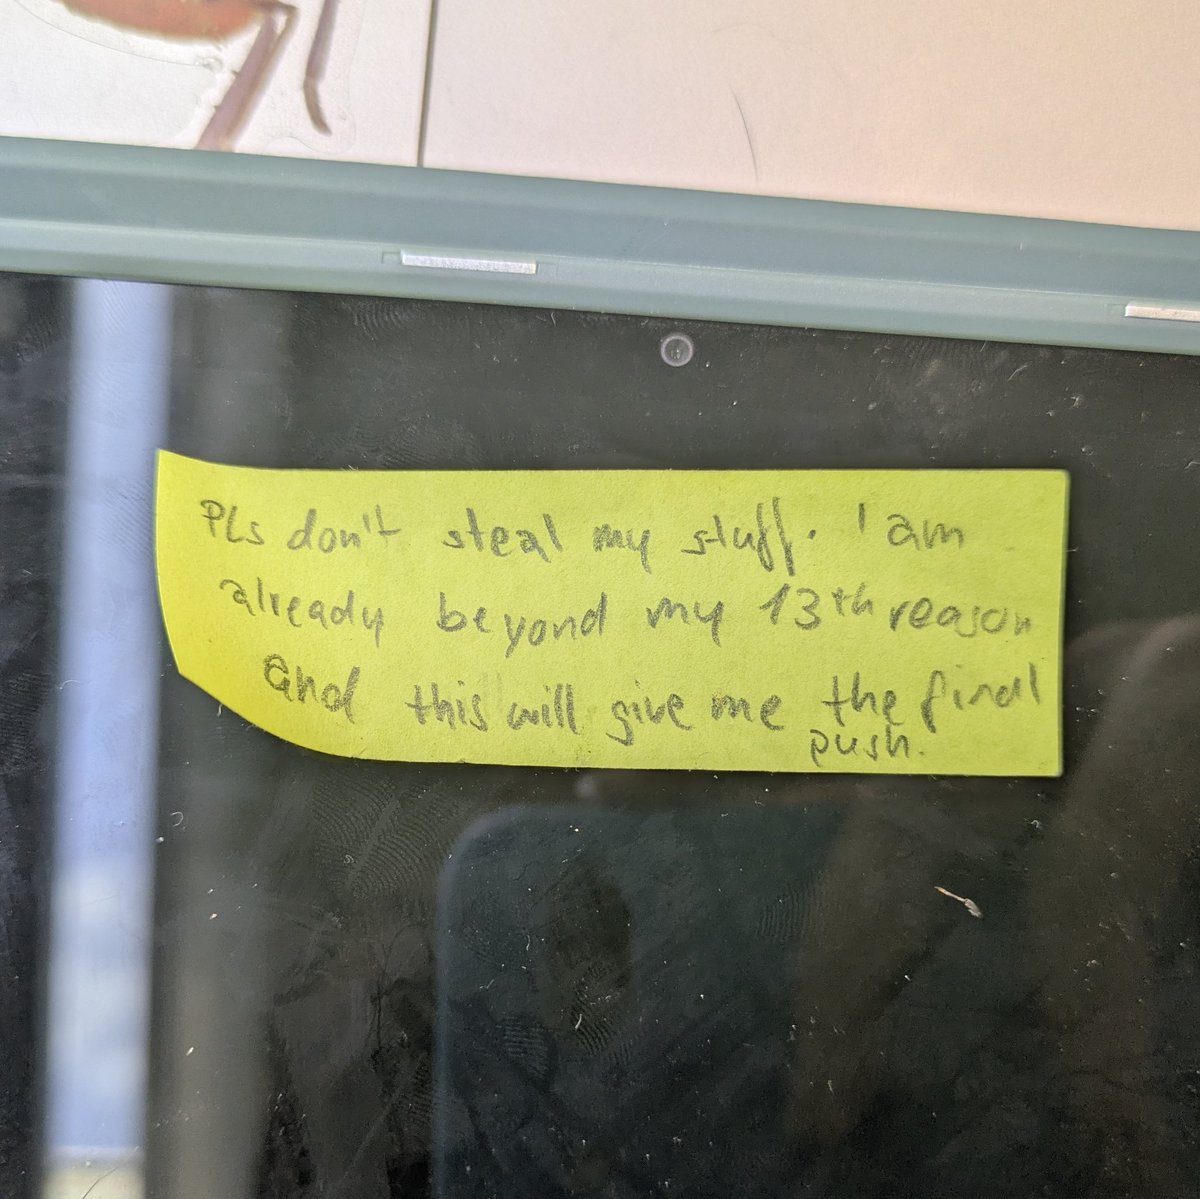 PLs don't steal my stuff. I am
already beyond my 13th reason
and this will give me the final
push.